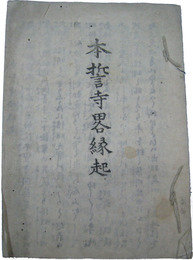 本誓寺畧縁起